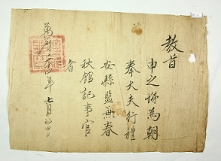 教旨
申之悌為朝
奉大夫行禮
安縣監兼春
秋館記事官
者
萬曆
年七月
日